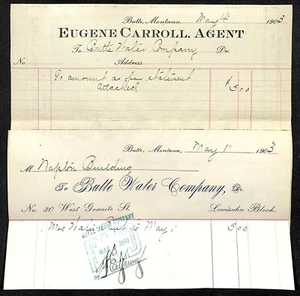 Butte, Montana, May 1st 1903
EUGENE CARROLL, AGENT
To Butte Water Company Dr.
No Address
To amount as per statement
attached $5.00
Butte, Montana, May 1st 1903
M Napton Building
To Butte Water Company, Dr.
No. 30 West Granite St. Lewisohn Block.
Water Rent to May 1 5.00
BUTTE WATER COMPANY